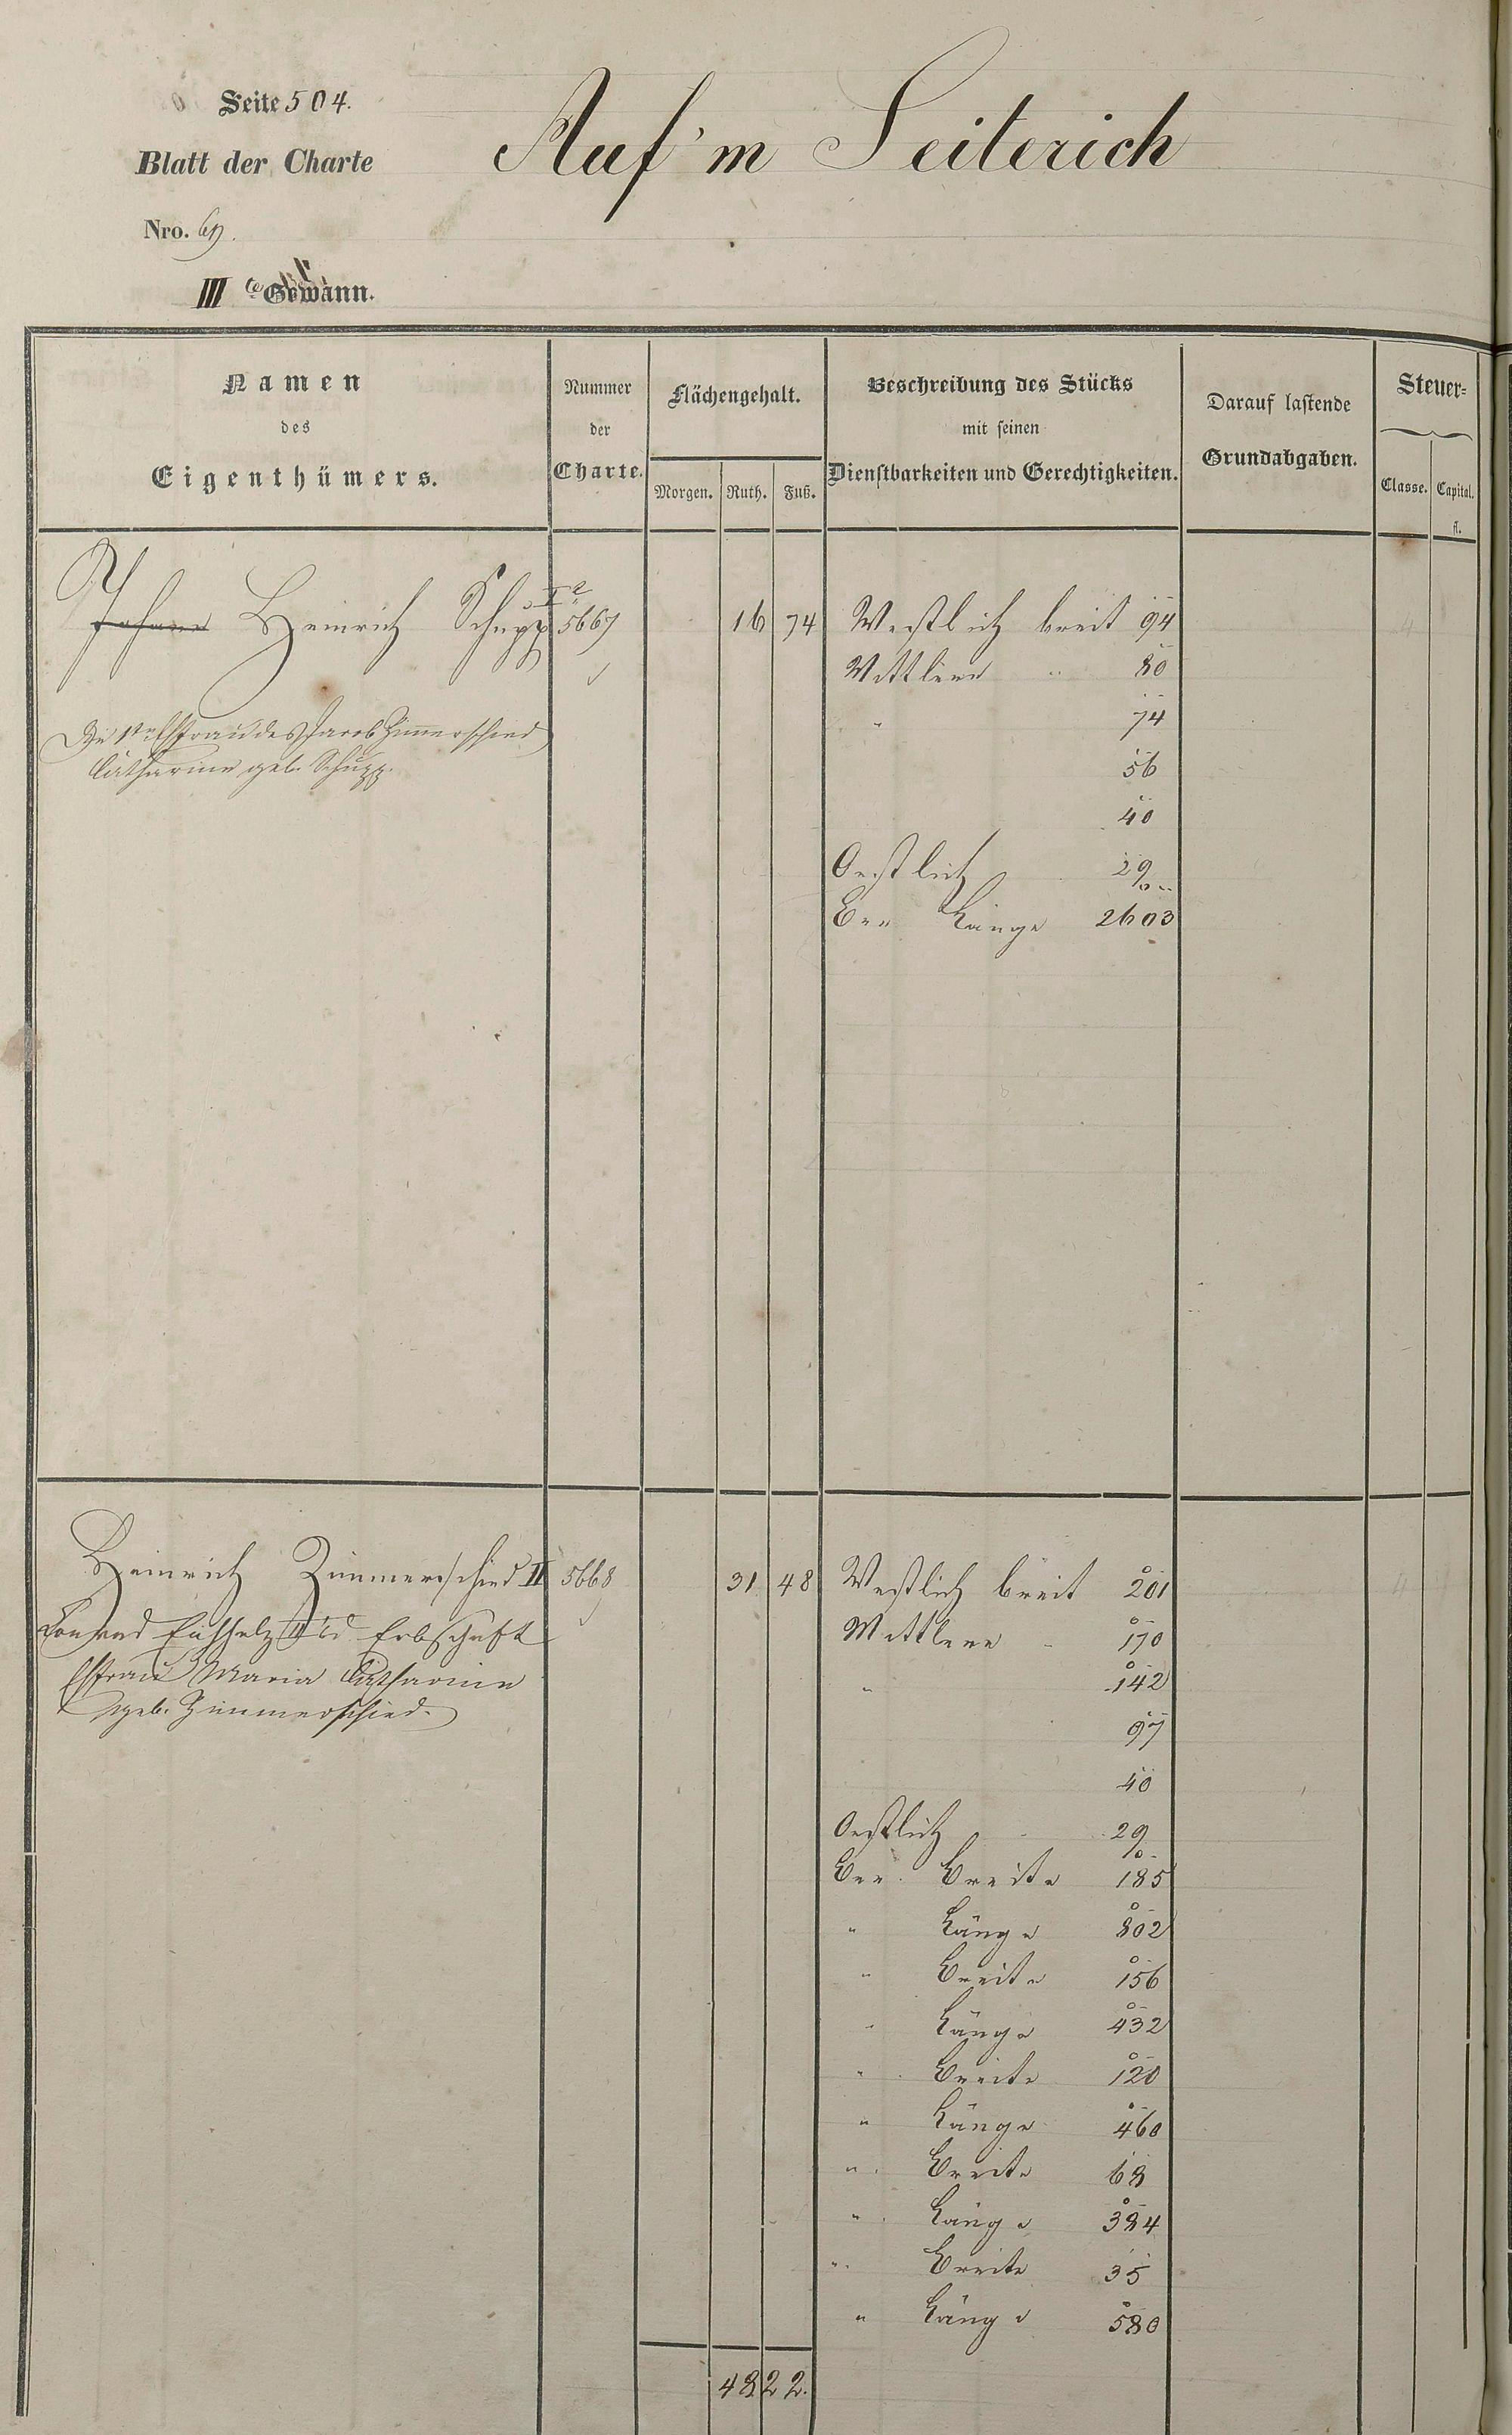 Seite 504.
Auf'm Seiterich
Blatt der Charte
Nro. 69.
III te Gewann.
Namen
des
Eigenthümers.
Nummer
der
Charte.
Flächengehalt.
Morgen. Ruth. Fuß.
Beschreibung des Stücks
mit seinen
Dienstbarkeiten und Gerechtigkeiten.
Darauf lastende
Grundabgaben.
Steuer=
Classe. Capital.
fl.
Johann Heinrich Schupp 5667 16 74 Westlich breit 94
Mittlere " 80
" 74
Die Ehefrau des Jacob Zimmerschied
Catharine geb. Schupp.
56
40
Oestlich 29
Die Länge 2603
Heinrich Zimmerschied II 5668 31 48 Westlich breit 201
Conrad Eichholz Erbschaft
Mittlere " 170
Ehefrau Maria Catharine
" 142
geb. Zimmerschied.
97
40
Oestlich 29
Breite 185
" Länge 802
" Breite 156
" Länge 432
" Breite 120
" Länge 460
" Breite 68
" Länge 384
" Breite 35
" Länge 580
48 22.